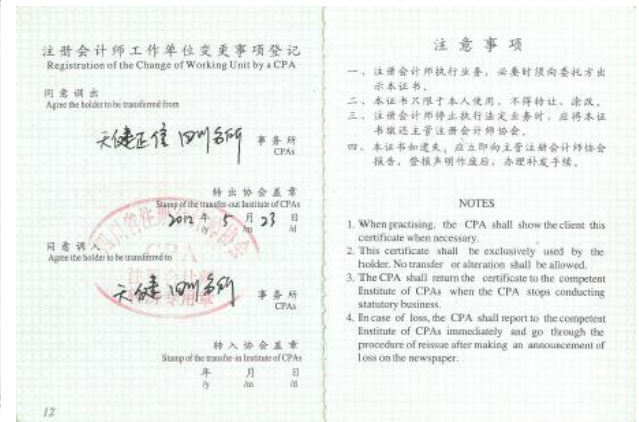 注册会计师工作单位变更事项登记
Registration of the Change of Working Unit by a CPA
同意调出
Agree the holder to be transferred from
天健正信四川分所 事务所
CPAs
转出协会盖章
Stamp of the transfer-out Institute of CPAs
2012年 5 月 23 日
/y /m /d
同意调入
Agree the holder to be transferred to
天健四川分所 事务所
CPAs
转入协会盖章
Stamp of the transfer-in Institute of CPAs
年 月 日
/y /m /d
12
注意事项
一、注册会计师执行业务,必要时须向委托方出
示本证书。
二、本证书只限于本人使用,不得转让、涂改。
三、注册会计师停止执行法定业务时,应将本证
书缴还主管注册会计师协会。
四、本证书如遗失,应立即向主管注册会计师协会
报告,登报声明作废后,办理补发手续。
NOTES
1. When practising, the CPA shall show the client this
certificate when necessary.
2. This certificate shall be exclusively used by the
holder. No transfer or alteration shall be allowed.
3. The CPA shall return the certificate to the competent
Institute of CPAs when the CPA stops conducting
statutory business.
4. In case of loss, the CPA shall report to the competent
Institute of CPAs immediately and go through the
procedure of reissue after making an announcement of
loss on the newspaper.